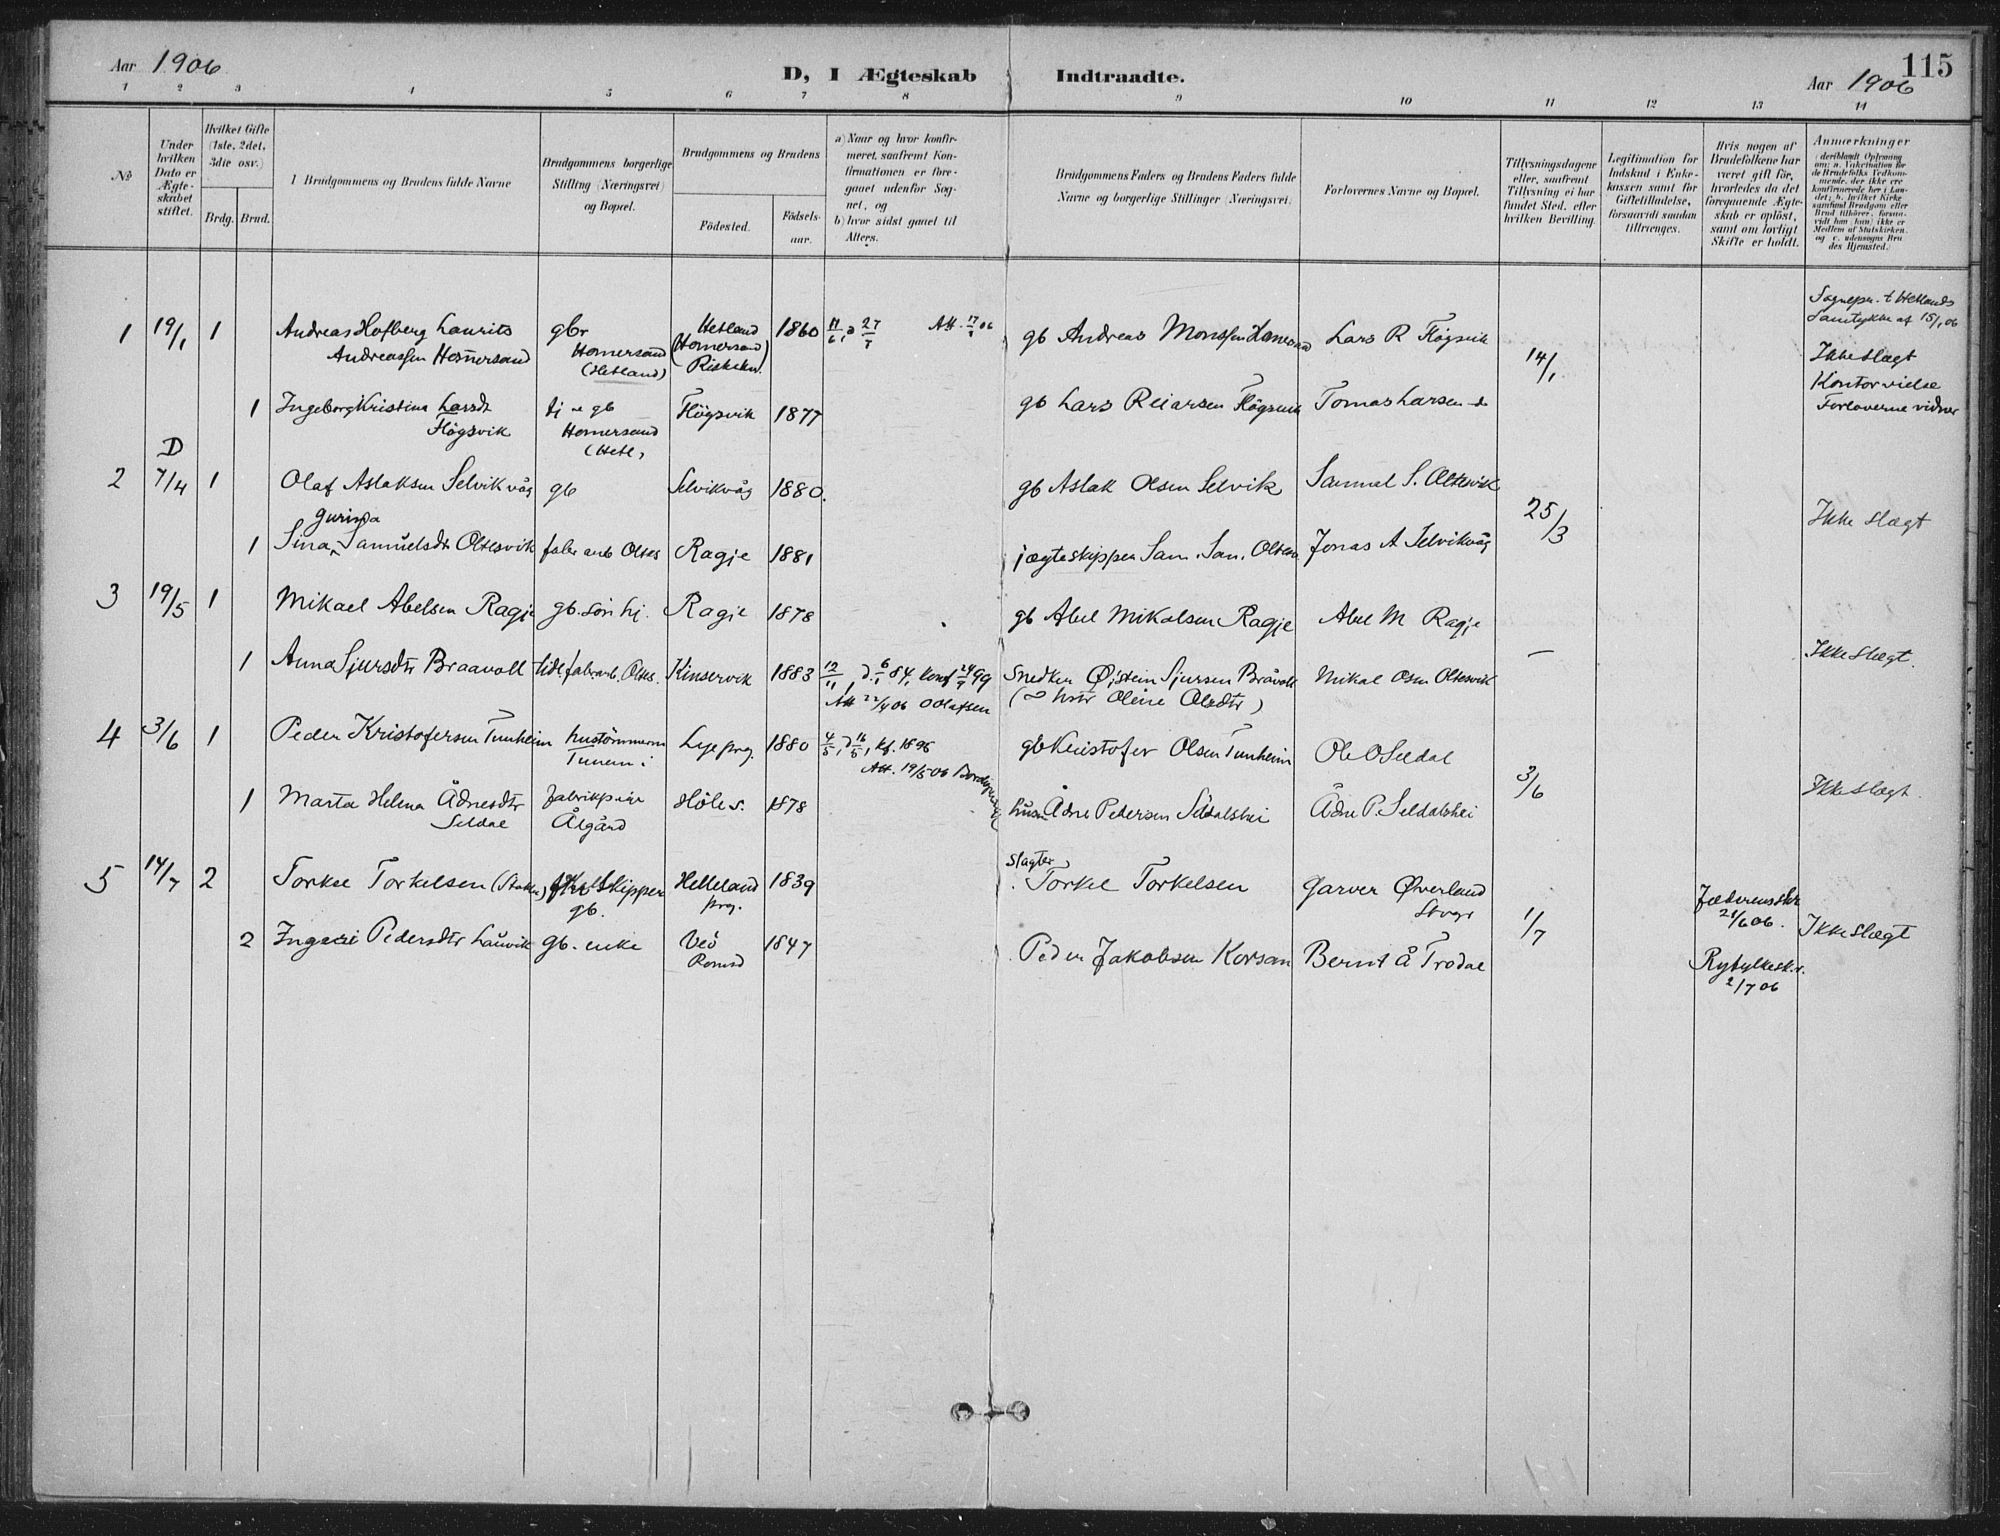 115
Aar 1906
D, I Ægteskab Indtraadte.
Aar 1906
1 2 3 4 5 6 7 8 9 10 11 12 13 14
No
Under hvilken Dato er Ægteskabet stiftet.
Hvilket Gifte (1ste, 2det, 3die osv.)
Brdg. Brud.
1 Brudgommens og Brudens fulde Navne
Brudgommens borgerlige Stilling (Næringsvei) og Bopæl.
Brudgommens og Brudens
Fødested.
Fødselsaar.
a) Naar og hvor konfirmeret, saafremt Konfirmationen er foregaaet udenfor Sognet, og
b) hvor sidst gaaet til Alters.
Brudgommens Faders og Brudens Faders fulde Navne og borgerlige Stillinger (Næringsvei.
Forlovernes Navne og Bopæl.
Tillysningsdagene eller, saafremt Tillysning ei har fundet Sted, efter hvilken Bevilling.
Legitimation for Indskud i Enkekassen samt for Giftetilladelse, forsaavidt saadan tiltrænges.
Hvis nogen af Brudefolkene har været gift før, hvorledes da det foregaaende Ægteskab er opløst, samt om lovligt Skifte er holdt.
Anmærkninger
(deriblandt Oplysning om: a. Vakcination for de Brudefolks Vedkommende, der ikke ere konfirmerede her i Landet; b. hvilket Kirkesamfund Brudgom eller Brud tilhører, forsaavidt han (hun) ikke er Medlem af Statskirken, og c. udensogns Brudes Hjemsted.)
Sognepr. t Hetlands
Samtykke af 15/1 06
1 19/1 1 Andreas Hofberg Laurits gbr Hetland 1860 11/6, d 27/7 Att. 17/1 06 gb Andreas Lars R Fløgsvik
Andreassen Homersand Homersand (Homersand)
(Hetland) 14/1 Ikke slægt
Kontorvielse
1 Ingeborg Kristina Larsdt tj gb Fløgsvik 1877 gb Lars Reiarsen Fløgsvik Tomas Larsen Forloverne vidner
Fløgsvik Homersand
(Hetl,
D
2 7/4 1 Olaf Aslaksen Selvikvåg gb Selvikvåg 1880. gb Aslak Olsen Selvik Samuel S. Oltesvik
Gurina 25/3 Ikke slægt
1 Sina Samuelsdt Oltesvik fabr arb Oltes Ragje 1881 jægteskipper Sam. Sam. Jonas A Selvikvåg
3 19/5 1 Mikael Abelsen Ragje gb. søn hj. Ragje 1878 gb Abel Mikalsen Ragje Abel M Ragje
1 Anna Sjursdtr Braavoll tidl fabrarb. Oltes. Kinservik 1883 12/11, d. 6/1 84, konf 24/9 99 Snedker Øistein Sjursen Bråvoll Mikal Osm Oltesvik — Ikke slægt.
Att 22/4 06 O Olafsen ( hstr Oline Olsdtr)
4 3/6 1 Peder Kristofersen Tunheim hustømmerm Lye prg. 1880 4/5, d 16/5, kf. 1896 gb Kristofer Olsen Tunheim Ole O Seldal
Att. 19/5 06
3/6 Ikke slægt.
1 Marta Helena Ådnesdtr fabrikpige Høle s. 1878 husm Ådne Pedersen Seldalshei Ådne P. Seldalshei
Seldal Ålgård
slagter
5 14/7 2 Torkel Torkelsen skipper Helleland 1839 Torkel Torkelsen Garver Øverland
gb. prg. Stvgr 1/7 21/6 06. Ikke slægt
2 Pedersdtr Lauvik gb. enke Veø 1847 Peder Jakobsen Korsan Bernt Å Trodal
Romsd Ryfylkesk.
2/7 06